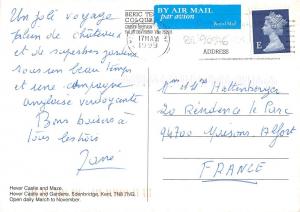 Un joli voyage
plein de châteaux
et de superbes jardins
sous un beau temps
et une campagne
anglaise verdoyante
Bons baisers à
tous les trois
Hever Castle and Maze.
Hever Castle and Gardens, Edenbridge, Kent, TN8 7NG.
Open daily March to November.
BY AIR MAIL
par avion
Royal Mail
17 MAY
1999
ADDRESS
E
2 Résidence le Parc
94700 Maisons Alfort
FRANCE